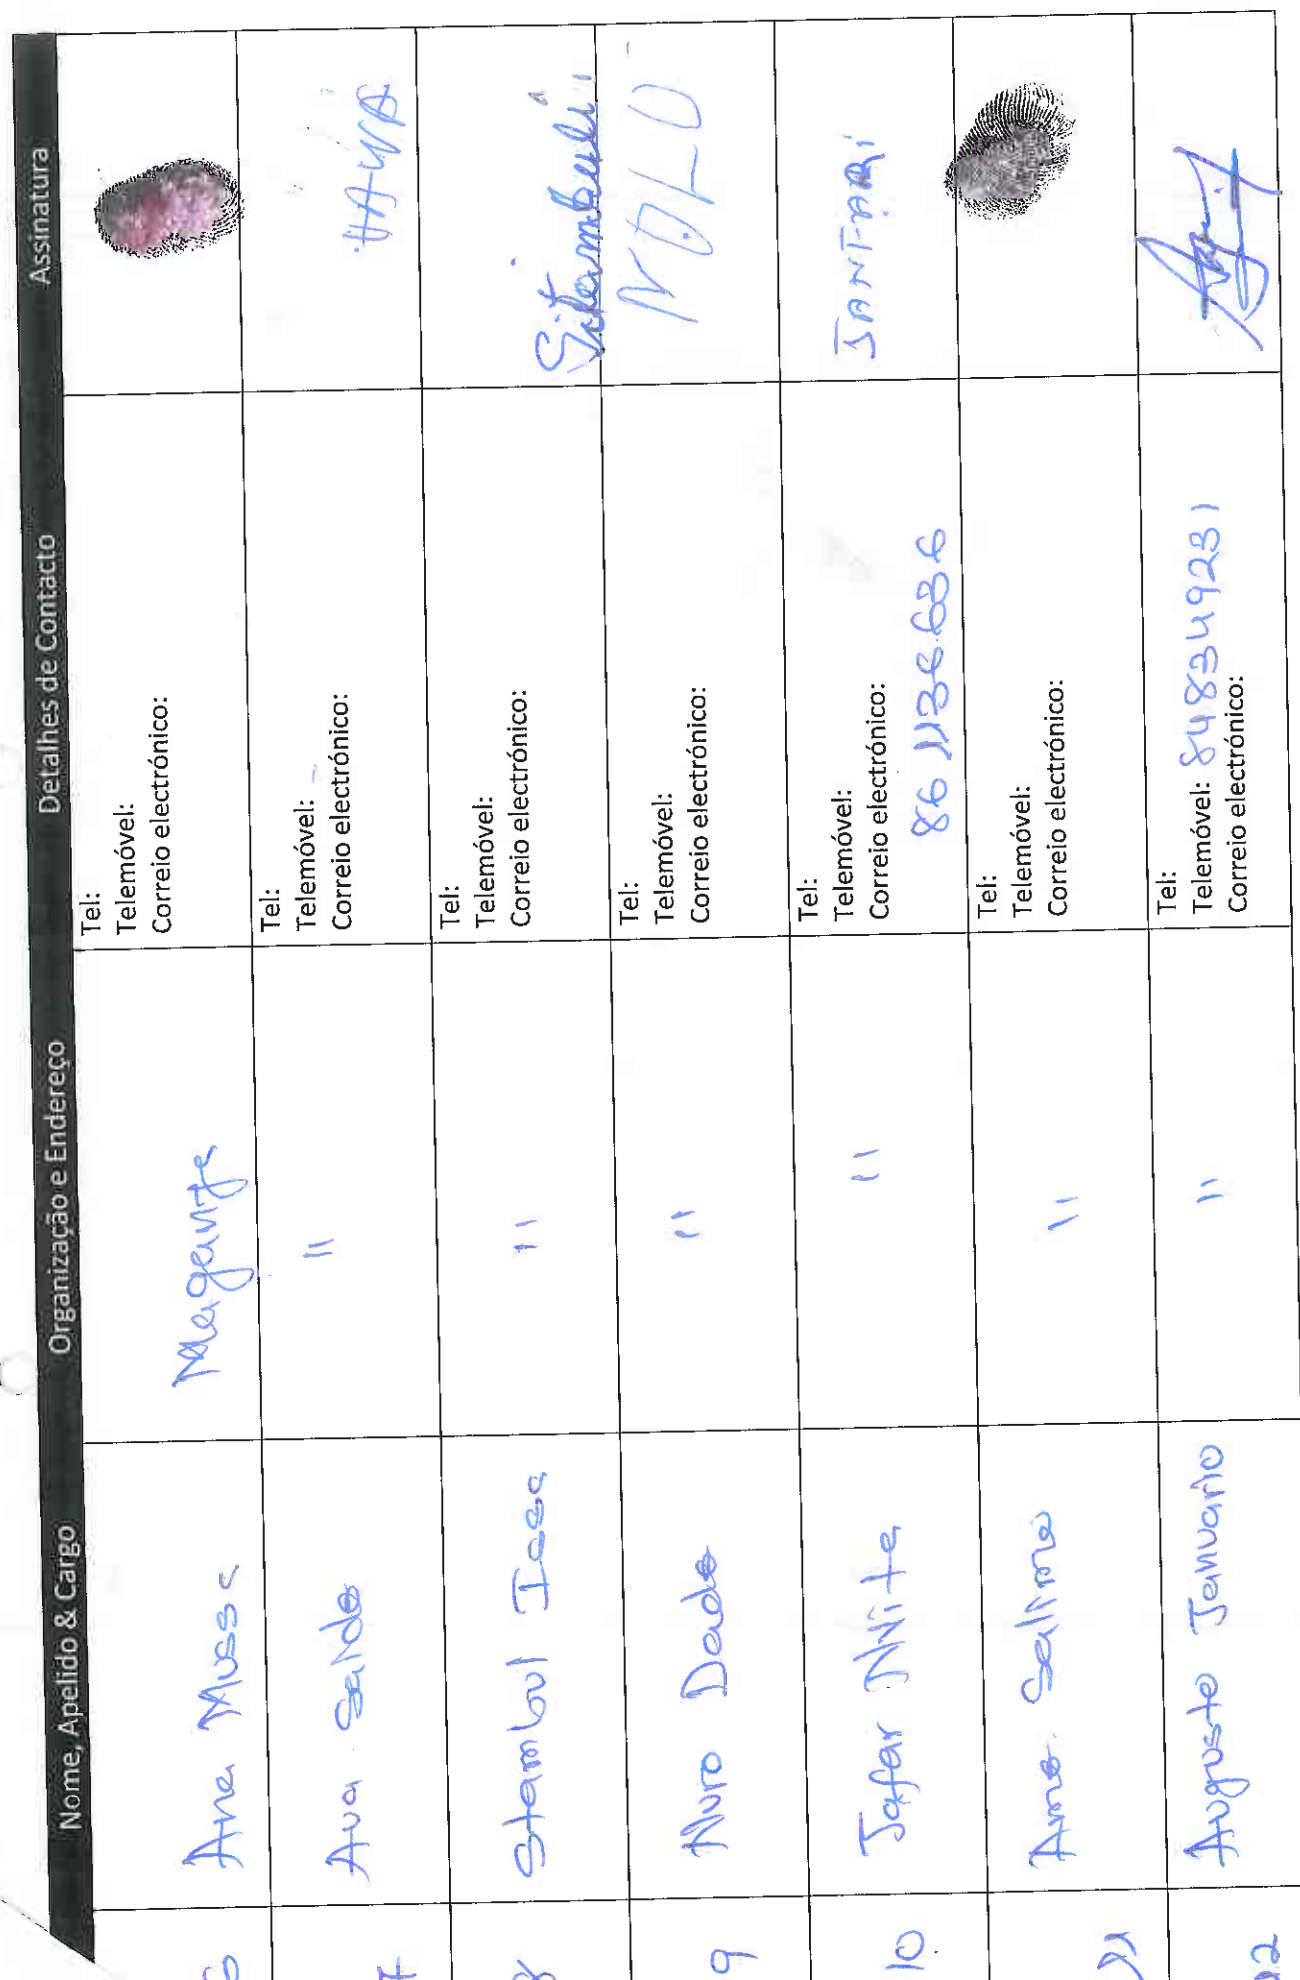 Nome, Apelido & Cargo Organização e Endereço Detalhes de Contacto Assinatura
6 Ana Mussa Maganja
Tel:
Telemóvel:
Correio electrónico:
7 Ava Saido "
Tel:
Telemóvel:
Correio electrónico:
HAWA
8 Stambul Issa "
Tel:
Telemóvel:
Correio electrónico:
Sitambuli
9 Nuro Dade "
Tel:
Telemóvel:
Correio electrónico:
10 Jafar "
Tel:
Telemóvel:
Correio electrónico:
86 1136636
11 Salimo "
Tel:
Telemóvel:
Correio electrónico:
12 Augusto Januario "
Tel:
Telemóvel: 848349231
Correio electrónico: